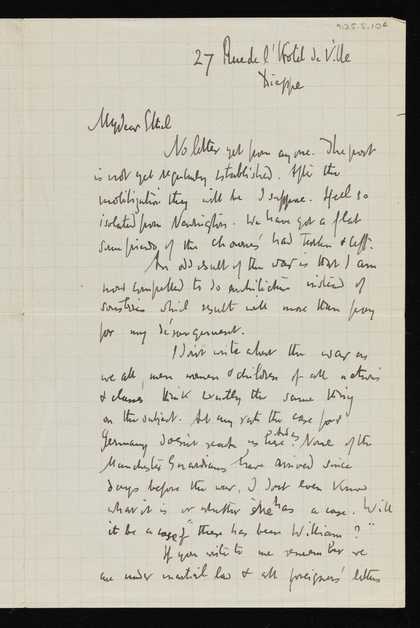 925.5.10
27 Rue de l'Hotel de Ville
Dieppe
My dear Ethel
No letter yet from anyone. The post
is not yet regularly established. After the
mobilization they will be I suppose. I feel so
isolated from Newington. We have got a flat
some friends of the had taken & left.
An odd result of the war is that I am
now compelled to do architecture instead of
which result will more than pay
for my derangement.
I don't write about the war as
we all, men women & children of all nations
& classes think exactly the same thing
on the subject. At any rate the case for
Germany doesn't reach us here. None of the
Manchester Guardians have arrived since
days before the war. I don't even know
what it is or whether she has a case. Will
it be a case of "there has been William?"
If you write to me remember we
are under martial law & all foreigners' letters